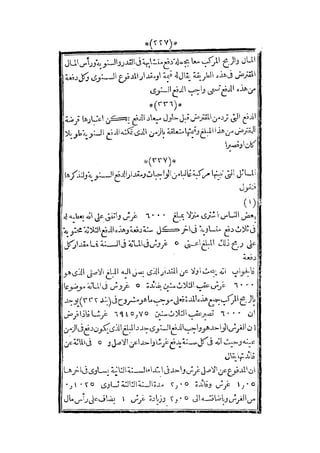 *(٢٢٧)*
المان والربح المركب معا بجملة دفع متشابهة فى القدر والسنوية ورأس المال
المقترض فى هذه الطريقة يقال له قيمة او مقدار المدفوع السنوى وكل دفعة
من هذه الدفع تسمى واجب الدفع السنوى
*(٣٣٦)*
الدفع التى ترد من المقترض قبل حلول ميعاد الدفع يمكن اعتبارها قرضة
المقترض من هذا المبلغ وقيمتها متعلقة بالزمن الذى تمكثه الدفع السنوية طويلا
كان او قصيرا
*(٣٣٧)*
المسائل التى نبينها مركبة غالبا من الواجبات ومقدار الدفع السنوية ولنذكرها
فنقول
(١)
بعض الناس اشترى منزلا بمبلغ ٦٠٠٠ غرش واتفق على انه يعطيه له
فى ثلاث دفع متساوية فى آخر كل سنة دفعة وهذه الدفع الثلاثة محتوية
على ربح ذلك المبلغ اعنى ٥ غروش فى المائة فى السنة فما مقدار كل
دفعة
فالجواب انه يبحث اولا عن المقدار الذى يصل اليه المبلغ الاصلى الذى هو
٦٠٠٠ غرش عقب الثلاث سنين بفائدة ٥ غروش فى المائة موضوعا
بالربح المركب جميع هذه المدة فعلى موجب ما هو مشروح فى (بند ٣٣٢) يوجد
ان ٦٠٠٠ تصير عقب الثلاث سنين ٦٩٤٥٫٧٥ غرشا فاذا فرض
ان الغرش الواحد هو واجب الدفع السنوى حدد المبلغ الذى يكون دفع فى الزمن
عينه وحيث انه فى كل سنة يدفع غرشا واحدا عن الاصلى و ٥ فى المائة عن
فائدتها يقال
ان المدفوع عن الاصلى غرش واحد فى ابتداء السنة الثانية يساوى فى آخرها
١٫٠٥ غرش وفائدة ٢٫٠٥ مدة السنة الثالثة تساوى ٠٫١٠٢٥
من الغرش وباضافته الى ٢٫٠٥ وزيادة غرش ١ يضاف على رأس مال